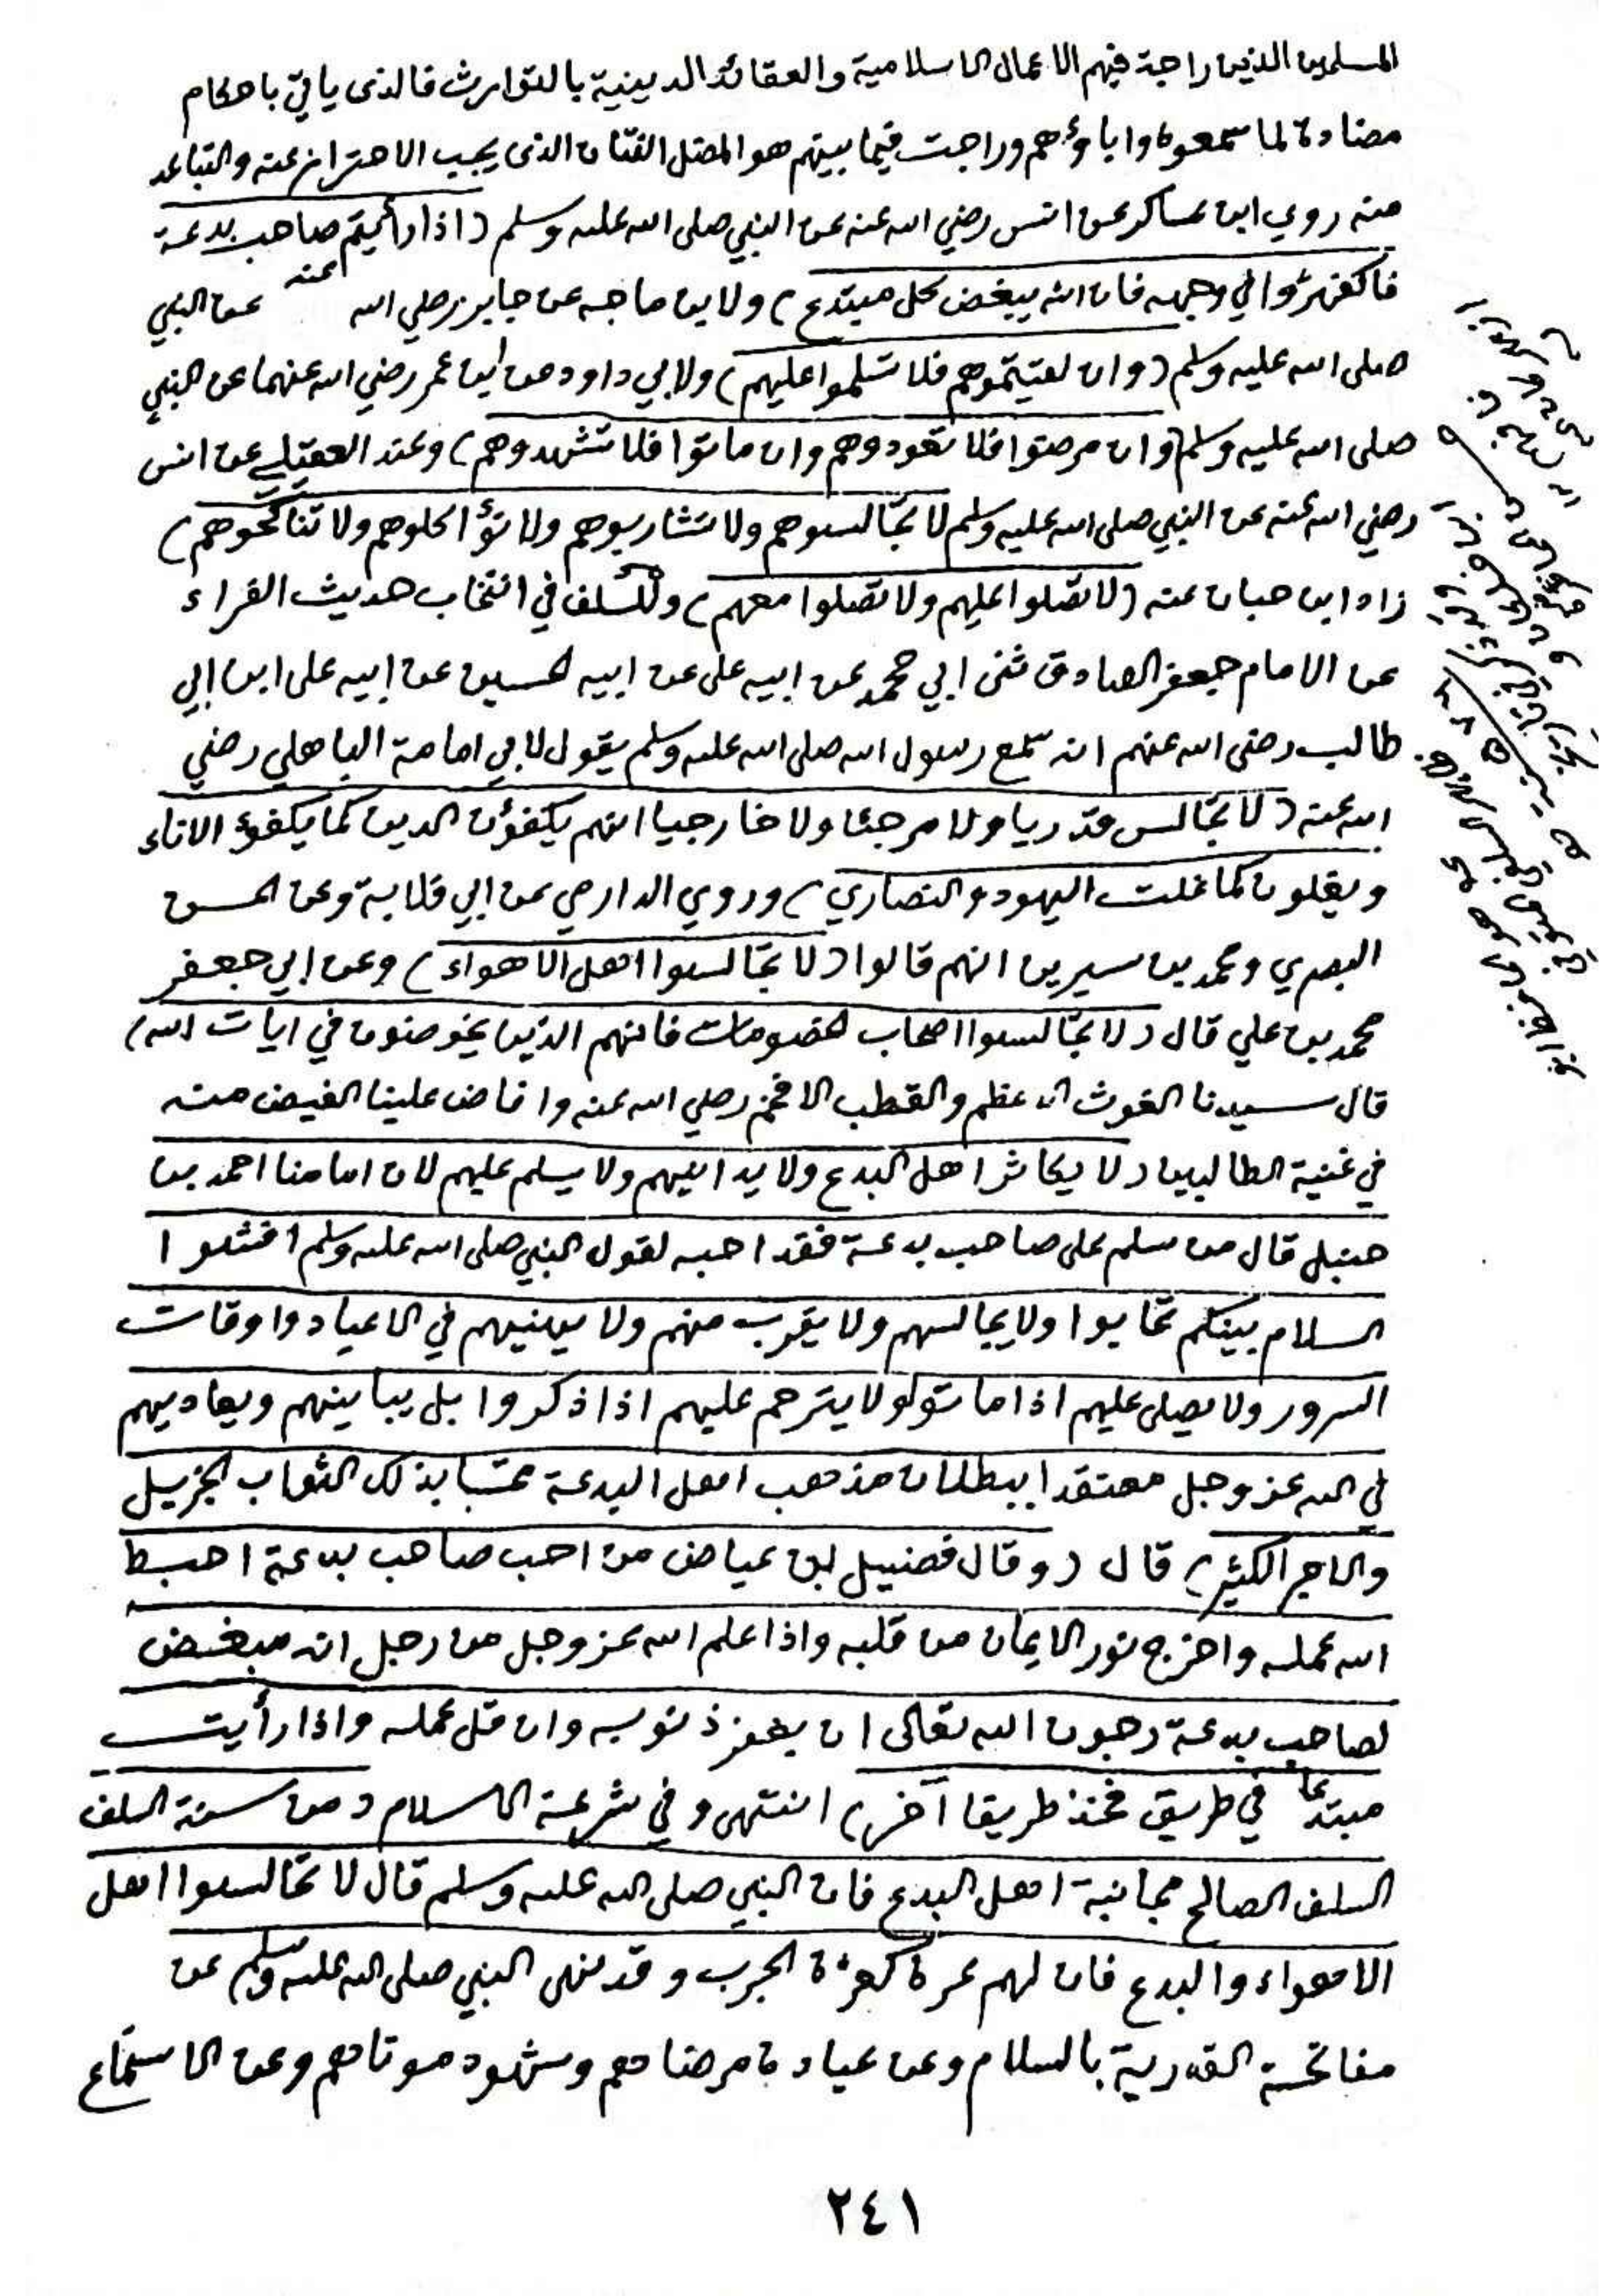 المسلمين الذين راجة فيهم الاعمال الاسلامية والعقائد الدينية بالتوارث فالذى ياتي باحكام
مضادة لما سمعوه واباؤهم وراجت فيما بينهم هو المضل الفتان الذى يجب الاحتراز عنه والتباعد
منه روي ابن عساكر عن انس رضي الله عنه عن النبي صلى الله عليه وسلم (اذا رأيتم صاحب بدعة
فاكفهرّوا في وجهه فان الله يبغض كل مبتدع) ولابن ماجه عن جابر رضي الله عنه عن النبي
صلى الله عليه وسلم (وان لقيتموهم فلا تسلموا عليهم) ولابي داود عن ابن عمر رضي الله عنهما عن النبي
صلى الله عليه وسلم (وان مرضوا فلا تعودوهم وان ماتوا فلا تشهدوهم) وعند العقيلي عن انس
رضي الله عنه عن النبي صلى الله عليه وسلم لا تجالسوهم ولا تشاربوهم ولا تؤاكلوهم ولا تناكحوهم)
زاد ابن حبان عنه (لا تصلوا عليهم ولا تصلوا معهم) وللسلف في انتخاب حديث القراء
عن الامام جعفر الصادق ثنى ابي محمد عن ابيه على عن ابيه الحسين عن ابيه على ابن ابي
طالب رضى الله عنهم انه سمع رسول الله صلى الله عليه وسلم يقول لابي امامة الباهلي رضي
الله عنه (لا تجالس قدريا ولا مرجئا ولا خارجيا انهم يكفؤن الدين كما يكفؤ الاناء
ويغلون كما غلت اليهود والنصاري) وروي الدارمي عن ابي قلابة وعن الحسن
البصري ومحمد بن سيرين انهم قالوا (لا تجالسوا اهل الاهواء) وعن ابي جعفر
محمد بن علي قال (لا تجالسوا اصحاب الخصومات فانهم الذين يخوضون في ايات الله)
قال سيدنا الغوث الاعظم والقطب الافخم رضي الله عنه وافاض علينا الفيض منه
في غنية الطالبين (لا يكاثر اهل البدع ولا يدانيهم ولا يسلم عليهم لان امامنا احمد بن
حنبل قال من سلم على صاحب بدعة فقد احبه لقول النبي صلى الله عليه وسلم افشوا
السلام بينكم تحابوا ولا يجالسهم ولا يقرب منهم ولا يهنيهم في الاعياد واوقات
السرور ولا يصلى عليهم اذا ماتو ولا يترحم عليهم اذا ذكروا بل يباينهم ويعاديهم
في الله عز وجل معتقدا ببطلان مذهب اهل البدعة محتسبا بذلك الثواب الجزيل
والاجر الكثير) قال (وقال فضيل ابن عياض من احب صاحب بدعة احبط
الله عمله واخرج نور الايمان من قلبه واذا علم الله عز وجل من رجل انه مبغض
لصاحب بدعة رجون الله تعالى ان يغفر ذنوبه وان قل عمله واذا رأيت
مبتدعا في طريق فخذ طريقا آخر) انتهى وفي شرعة الاسلام (من سنة السلف
السلف الصالح مجانبة اهل البدع فان النبي صلى الله عليه وسلم قال لا تجالسوا اهل
الاهواء والبدع فان لهم عرة كعرّة الجرب وقد نهى النبي صلى الله عليه وسلم عن
مفاتحة القدرية بالسلام وعن عيادة مرضاهم وشهود موتاهم وعن الاستماع
٢٤١